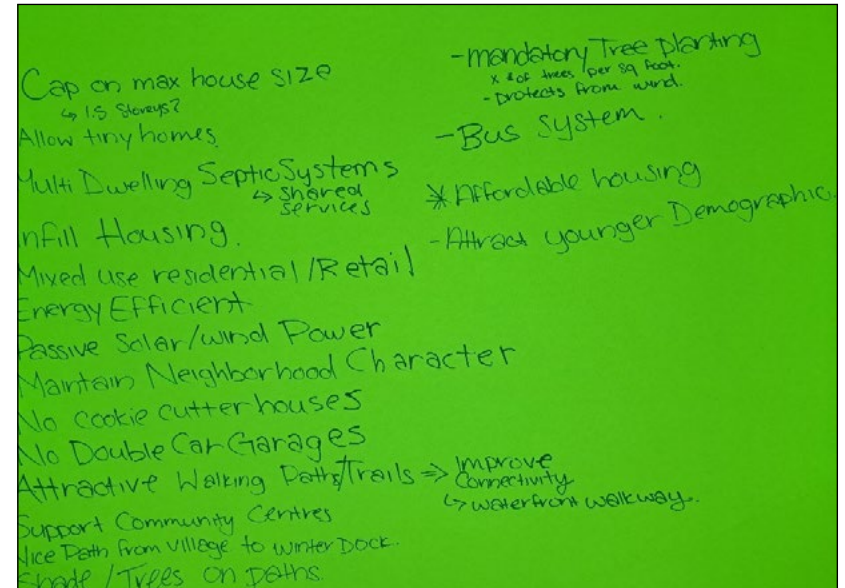 Cap on max house size
↳ 1.5 Storeys?
Allow tiny homes
Multi Dwelling Septic Systems
↳ shared
services
Infill Housing.
Mixed use residential/Retail
Energy Efficient
Passive Solar/wind Power
Maintain Neighborhood Character
No cookie cutter houses
No Double Car Garages
Attractive Walking Paths/Trails ⇒ Improve
Connectivity
↳ waterfront walkway.
Support Community Centres
Nice Path from Village to winter Dock.
Shade / Trees on paths.
- mandatory Tree planting
x # of trees per sq foot.
- protects from wind.
- Bus system.
* Affordable housing
- Attract younger Demographic.